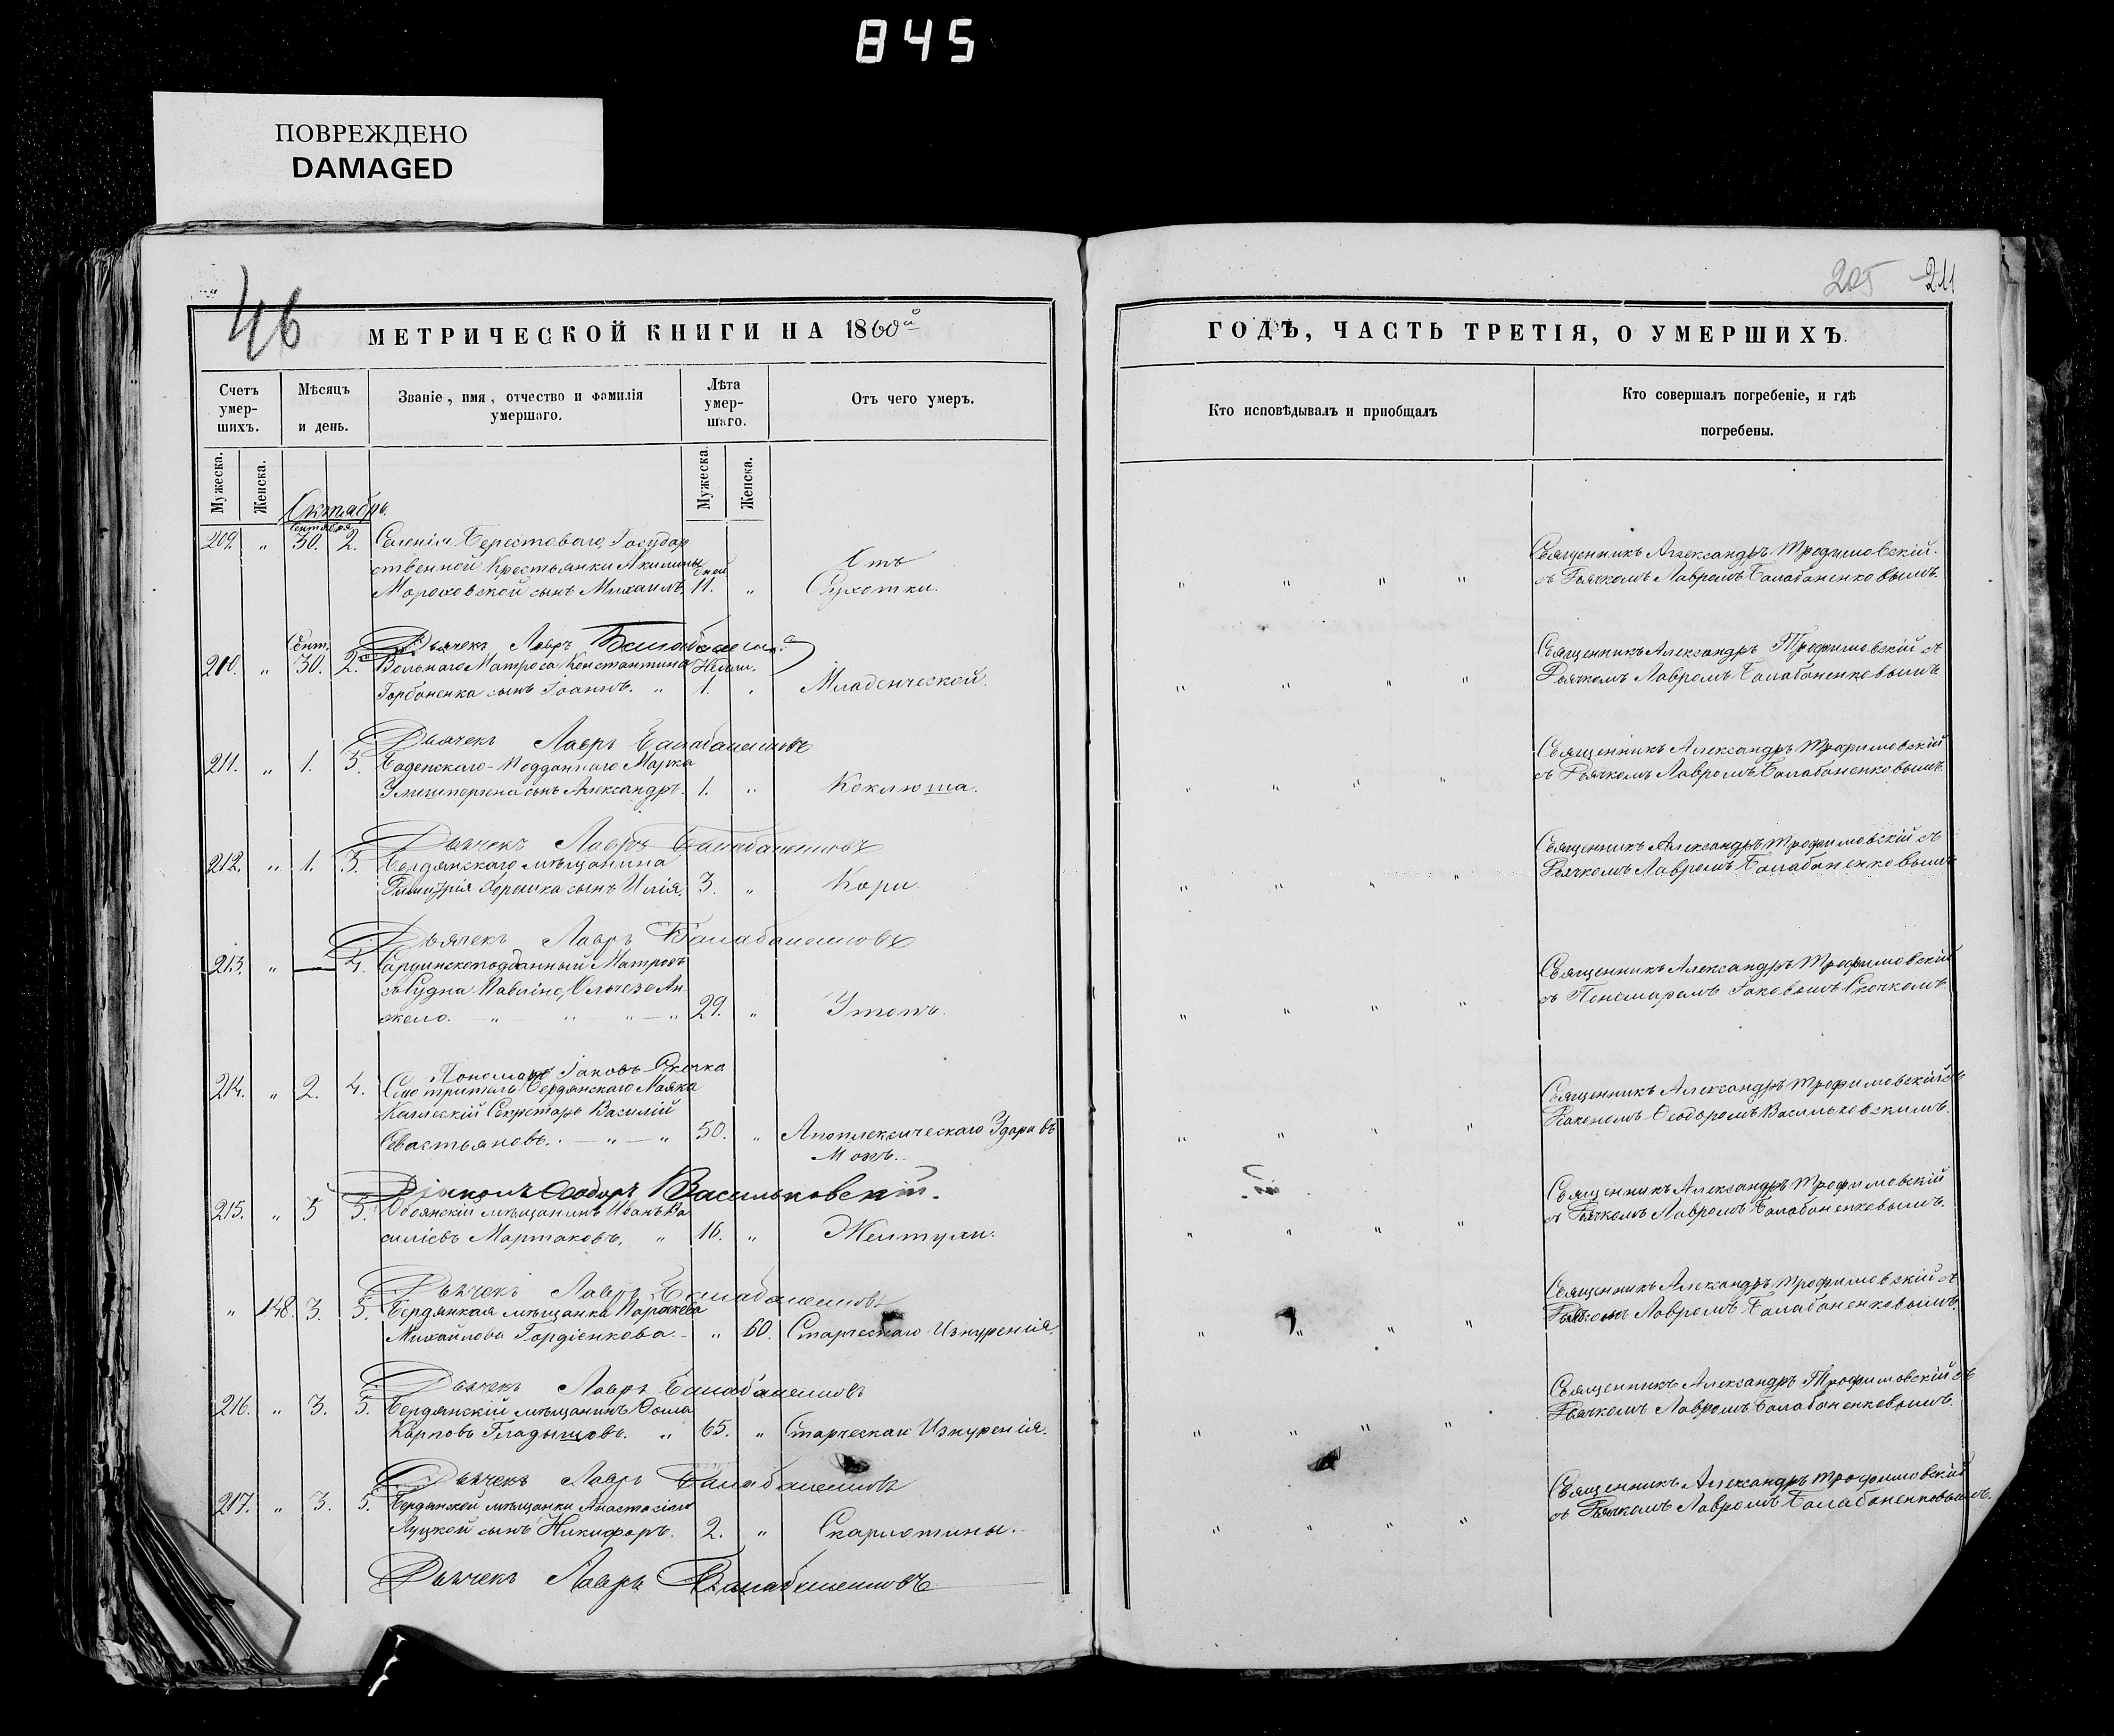 845
ПОВРЕЖДЕНО
DAMAGED
46
205 211
МЕТРИЧЕСКОЙ КНИГИ НА 1860й
ГОДЪ, ЧАСТЬ ТРЕТІЯ, О УМЕРШИХЪ.
Счетъ умер-шихъ.
Мѣсяцъ и день.
Званіе, имя, отчество и фамилія умершаго.
Лѣта умер-шаго.
Отъ чего умеръ.
Кто исповѣдывалъ и пріобщалъ
Кто совершалъ погребеніе, и гдѣ погребены.
Мужеска. Женска. Мужеска. Женска.
Октябрь.
Сентября
209. " 30. 2. Селенія Берестоваго, Государ
ственной Крестьянки Акилины дней Отъ
Мороховской сынъ Михаилъ. 11. " Сухотки.
Священникъ Александръ Трофимовскій.
съ Дьячкомъ Лавромъ Балабаненковымъ.
Дьячекъ Лавръ
Сент.
210. " 30. 2. Вольнаго Матроса Константина Недѣл.
Горбаненка сынъ Іоаннъ. " 1. " Младенческой.
Священникъ Александръ Трофимовскій съ
Дьячкомъ Лавромъ Балабаненковымъ
Дьячекъ Лавръ Балабаненковъ
211. " 1. 3. Баденскаго-Подданнаго Марка
сынъ Александръ. 1. " Коклюша.
Священникъ Александръ Трофимовскій
съ Дьячкомъ Лавромъ Балабаненковымъ.
Дьячекъ Лавръ Балабаненковъ
212. " 1. 3. Бердянскаго мѣщанина
Димитрія сынъ Илія. 3. " Кори.
Священникъ Александръ Трофимовскій съ
Дьячкомъ Лавромъ Балабаненковымъ
Дьячекъ Лавръ Балабаненковъ
213. " — 4. Сардинскоподданный Матросъ
съ Судна
жело. " " " " 29. " Утопъ.
Священникъ Александръ Трофимовскій
съ Пономаремъ Іаковымъ Скочкомъ.
Пономарь Іаковъ Скочка
214. " 2. 4. Смотритель Бердянскаго Маяка
Коллескій Секретарь Василій
Севастьяновъ. " " 50. " Апоплексическаго Удара въ
Мозгъ.
Священникъ Александръ Трофимовскій съ
Діакономъ Ѳеодоромъ Васильковскимъ.
Діаконъ Ѳеодоръ Васильковскій.
215. " 3 5. Обоянскій мѣщанинъ Иванъ Ва
силіевъ Мартаковъ. " 16. " Желтухи.
Священникъ Александръ Трофимовскій
съ Дьячкомъ Лавромъ Балабаненковымъ.
Дьячекъ Лавръ Балабаненковъ
" 148. 3. 5. Бердянкая мѣщанка Параскева
Михайлова Гордіенкова. " 60. Старческаго Изнуренія.
Священникъ Александръ Трофимовскій съ
Дьячкомъ Лавромъ Балабаненковымъ.
Дьячекъ Лавръ Балабаненковъ
216. " 3. 5. Бердянскій мѣщанинъ Ѳома
Карповъ Гладыщовъ. " 65. " Старческаго Изнуренія.
Священникъ Александръ Трофимовскій съ
Дьячкомъ Лавромъ Балабаненковымъ.
Дьячекъ Лавръ Балабаненковъ
217. " 3. 5. Бердянской мѣщанки Анастасіи
Луцкой сынъ Никифоръ. 2. " Скарлотины.
Священникъ Александръ Трофимовскій
съ Дьячкомъ Лавромъ Балабаненковымъ.
Дьячекъ Лавръ Балабаненковъ